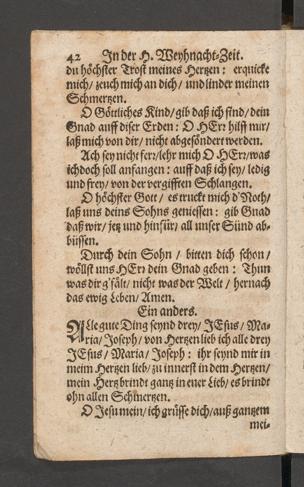 42 In der H. Weyhnacht-Zeit.
du höchster Trost meines Hertzen: erquicke
mich/ zeuch mich an dich/ und linder meinen
Schmertzen.
O Göttliches Kind/ gib daß ich find/ dein
Gnad auff diser Erden: O HErr hilff mir/
laß mich von dir/ nicht abgesöndert werden.
Ach sey nicht ferr/ lehr mich O HErr/ was
ich doch soll anfangen: auff daß ich sey/ ledig
und frey/ von der vergifften Schlangen.
O höchster Gott/ es truckt mich d'Noth/
laß uns deins Sohns geniessen: gib Gnad
daß wir/ jetz und hinfür/ all unser Sünd ab-
büssen.
Durch dein Sohn/ bitten dich schon/
wöllst uns HErr dein Gnad geben: Thun
was dir g'fält/ nicht was der Welt/ hernach
das ewig Leben/ Amen.
Ein anders.
Alle gute Ding seynd drey/ JEsus/ Ma-
ria/ Joseph/ von Hertzen lieb ich alle drey
JEsus/ Maria/ Joseph: ihr seynd mir in
meim Hertzen lieb/ zu innerst in dem Hertzen/
mein Hertz brindt gantz in ener Lieb/ es brindt
ohn allen Schmertzen.
O Jesu mein/ ich grüsse dich/ auß gantzem
mei-